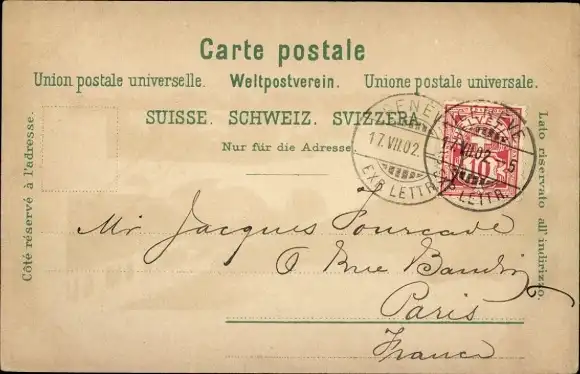 Carte postale
Union postale universelle. Weltpostverein. Unione postale universale.
SUISSE. SCHWEIZ. SVIZZERA.
Nur für die Adresse.
Côté réservé à l'adresse.
Lato riservato all' indirizzo.
GENÈVE
17.VII.02.
EXP. LETTR.
GENÈVE
17.VII.02. 5
EXP. LETTR.
10
Mr Jacques Fourcade
6 Rue Baudin
Paris
France